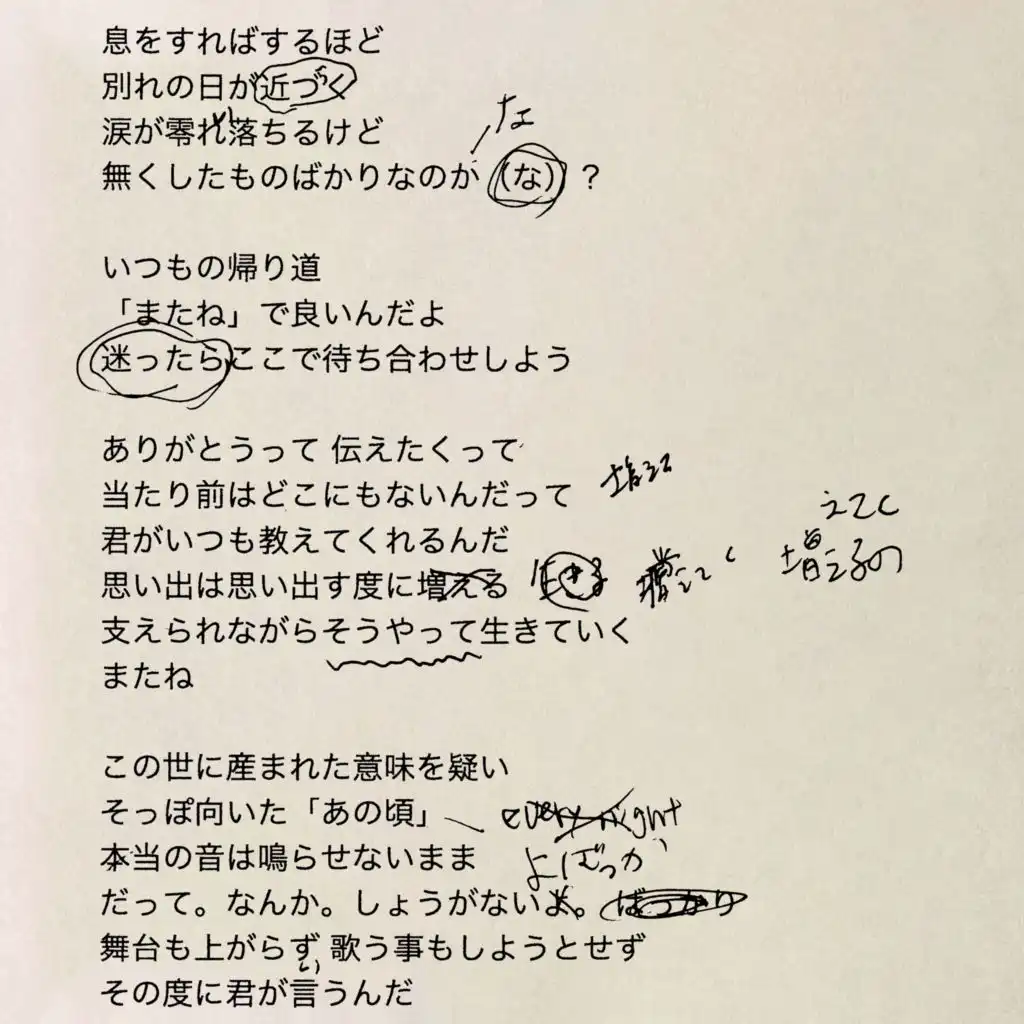 息をすればするほど
別れの日が近づく
涙が零れ落ちるけど
な
無くしたものばかりなのか(な)?
いつもの帰り道
「またね」で良いんだよ
迷ったらここで待ち合わせしよう
ありがとうって 伝えたくって
当たり前はどこにもないんだって 増えて
君がいつも教えてくれるんだ えてく
思い出は思い出す度に増える 増えてく 増えるの
支えられながらそうやって生きていく
またね
この世に産まれた意味を疑い
そっぽ向いた「あの頃」 every night
本当の音は鳴らせないまま
だって。なんか。しょうがないよ。 ばっかり
舞台も上がらず 歌う事もしようとせず
い
その度に君が言うんだ